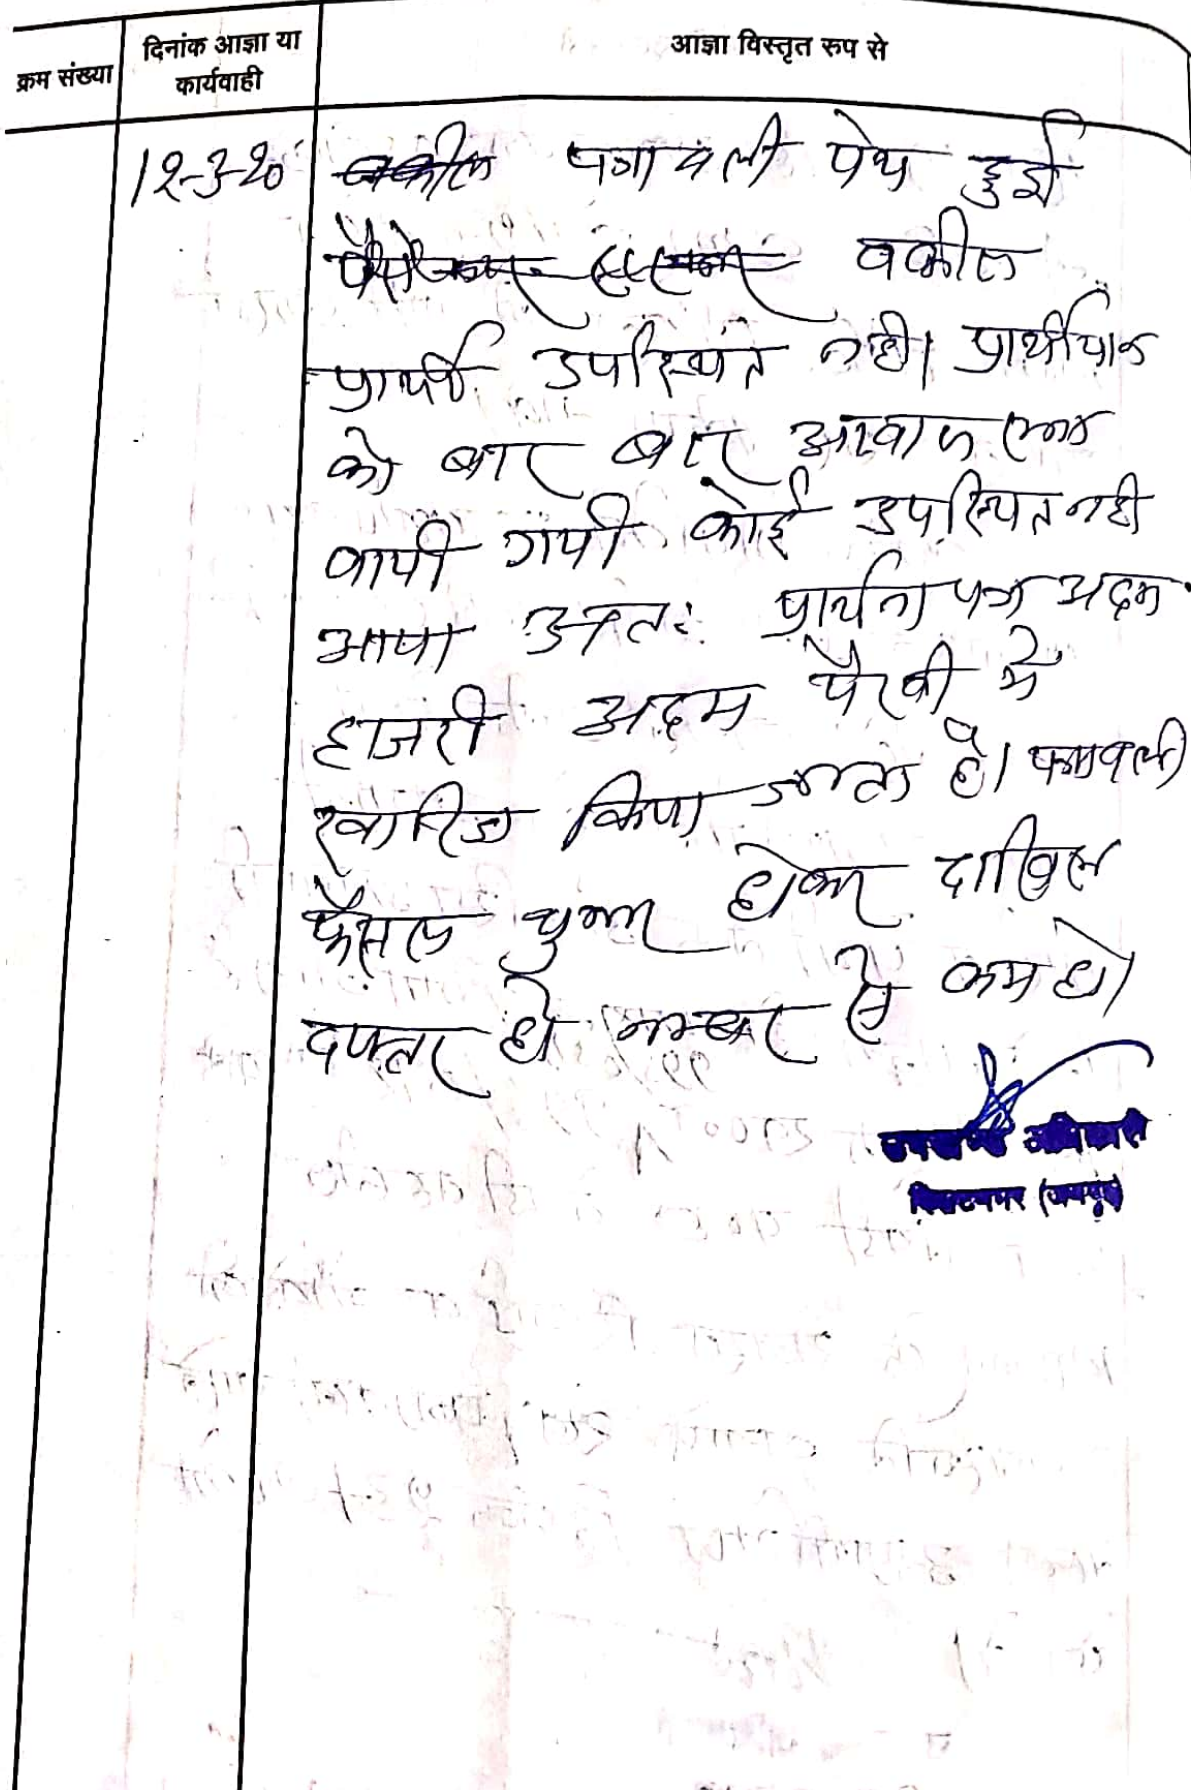 क्रम संख्या
दिनांक आज्ञा या
कार्यवाही
आज्ञा विस्तृत रुप से
12-3-20 वकील पत्रावली पेश हुई
वकील
प्रार्थी उपस्थित नही। प्रार्थीयान
को बार बार आवाज लग
वायी गयी कोई उपस्थित नही
आया अतः प्रार्थना पत्र अदम
हाजरी अदम पैरवी मे
खारिज किया जाता है। पत्रावली
फैसल शुमार होकर दाखिल
दफ्तर हो नम्बर से कम हो।
उपखण्ड अधिकारी
(जयपुर)